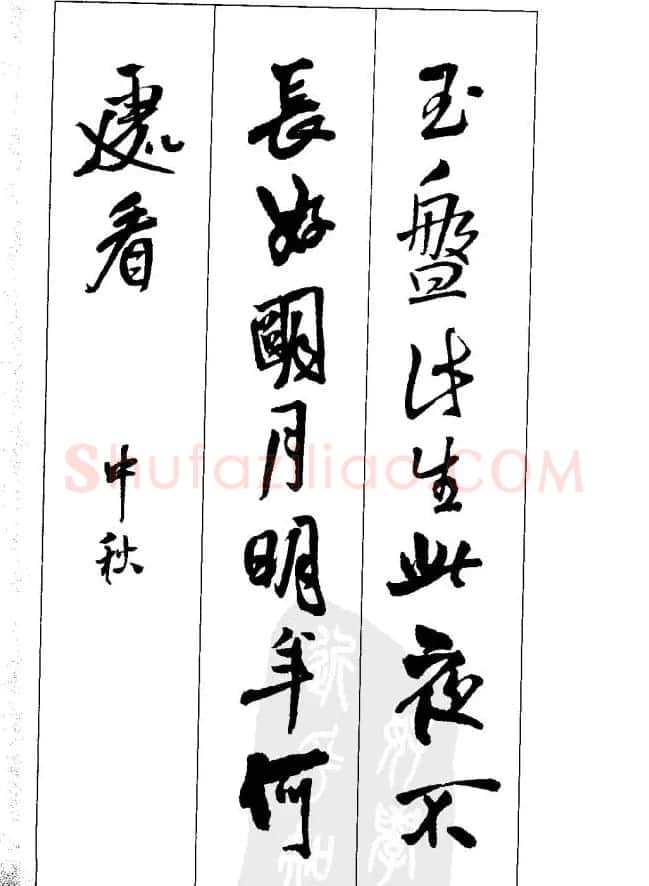 玉盤此生此夜不
長好朙月明年何
處看
中秋
Shufaziliao.COM